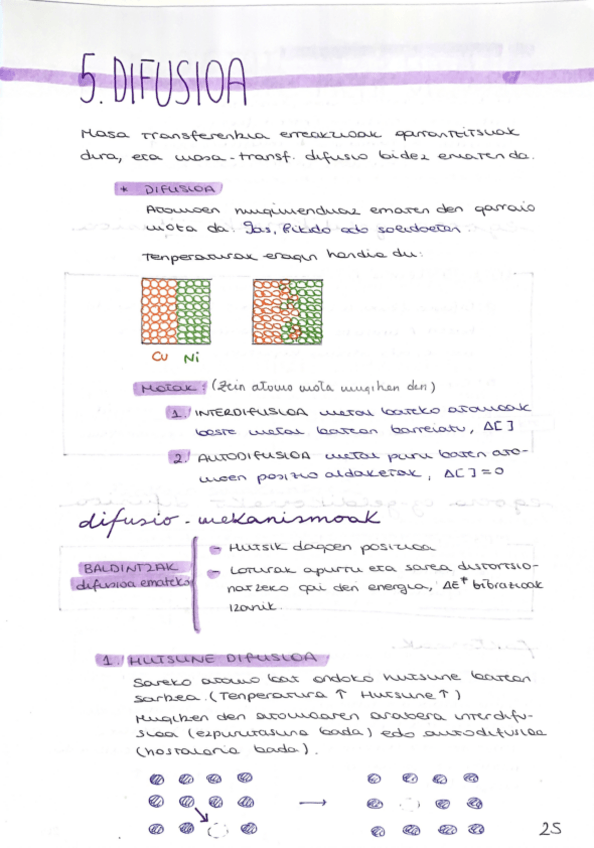 5. DIFUSIOA
Masa transferentzia erreakzioak garrantzitsuak
dira, eta masa-transf. difusio bidez ematen da.
* DIFUSIOA
Atomoen mugimenduaz ematen den garraio
mota da: gas, likido edo solidoetan
Tenperaturak eragin handia du:
Cu Ni
Motak: (Zein atomo mota mugitzen den)
1. INTERDIFUSIOA metal bateko atomoak
beste metal batean barreiatu, Δ[ ]
2. AUTODIFUSIOA metal puru baten ato-
moen posizio aldaketak, Δ[ ] = 0
difusio-mekanismoak
BALDINTZAK
difusioa emateko
- Hutsik dagoen posizioa
- Loturak apurtu eta sarea distortsio-
natzeko gai den energia, ΔE↑ bibrazioak
izanik.
1. HUTSUNE DIFUSIOA
Sareko atomo bat ondoko hutsune batean
sartzea. (Tenperatura ↑ Hutsune ↑)
Mugitzen den atomoaren arabera interdifu-
sioa (ezpurutasuna bada) edo autodifusioa
(hostalaria bada).
25